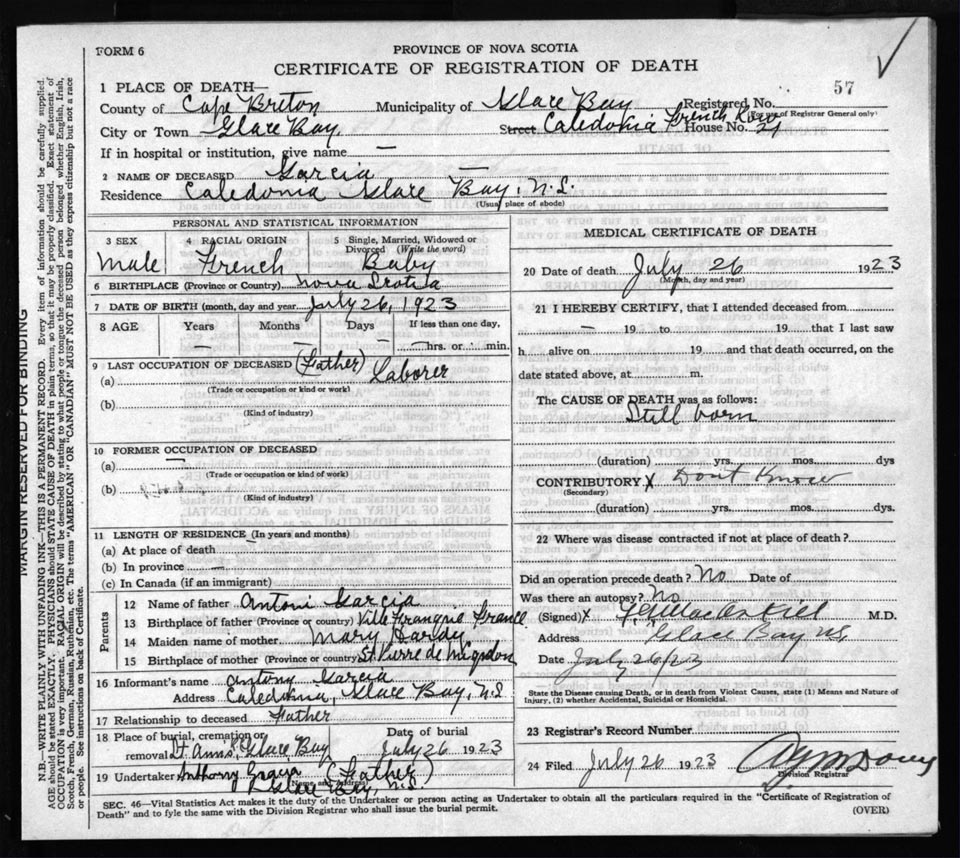 FORM 6
PROVINCE OF NOVA SCOTIA
CERTIFICATE OF REGISTRATION OF DEATH
57
1 PLACE OF DEATH—
County of Cape Breton Municipality of Glace Bay Registered No.
(For use of Registrar General only)
City or Town Glace Bay Street Caledonia French Row House No. 21
If in hospital or institution, give name —
2 NAME OF DECEASED Garcia —
Residence Caledonia Glace Bay, N.S.
(Usual place of abode)
PERSONAL AND STATISTICAL INFORMATION
3 SEX 4 RACIAL ORIGIN 5 Single, Married, Widowed or Divorced (Write the word)
Male French Baby
6 BIRTHPLACE (Province or Country) Nova Scotia
7 DATE OF BIRTH (month, day and year) July 26, 1923
8 AGE Years Months Days If less than one day,
— — — — hrs. or min.
9 LAST OCCUPATION OF DECEASED (Father) Laborer
(a)
(Trade or occupation or kind or work)
(b)
(Kind of industry)
10 FORMER OCCUPATION OF DECEASED
(a) —
(Trade or occupation or kind of work)
(b)
(Kind of industry)
11 LENGTH OF RESIDENCE (In years and months)
(a) At place of death —
(b) In province —
(c) In Canada (if an immigrant)
Parents
12 Name of father Antoni Garcia
13 Birthplace of father (Province or country) Ville Franque France
14 Maiden name of mother Mary Hardy
15 Birthplace of mother (Province or country) St. Pierre de Miqudon
16 Informant's name Antony Garcia
Address Caledonia, Glace Bay, N.S
17 Relationship to deceased Father
18 Place of burial, cremation or removal St Anns, Glace Bay
Date of burial July 26 1923
19 Undertaker Anthony (Father)
Glace Bay, N.S.
MEDICAL CERTIFICATE OF DEATH
20 Date of death July 26 1923
(Month, day and year)
21 I HEREBY CERTIFY, that I attended deceased from
— 19 to 19 that I last saw
h alive on 19 and that death occurred, on the
date stated above, at m.
The CAUSE OF DEATH was as follows:
Still born
(duration) yrs. mos. dys
CONTRIBUTORY X Dont Know
(Secondary)
(duration) yrs. mos. dys.
22 Where was disease contracted if not at place of death?
Did an operation precede death? No Date of
Was there an autopsy? No
(Signed) X M.D.
Address Glace Bay NS
Date July 26/23
State the Disease causing Death, or in death from Violent Causes, state (1) Means and Nature of Injury, (2) whether Accidental, Suicidal or Homicidal.
23 Registrar's Record Number
24 Filed July 26 1923
Division Registrar
SEC. 46—Vital Statistics Act makes it the duty of the Undertaker or person acting as Undertaker to obtain all the particulars required in the "Certificate of Registration of
Death" and to fyle the same with the Division Registrar who shall issue the burial permit.
(OVER)
MARGIN RESERVED FOR BINDING
N.B.—WRITE PLAINLY WITH UNFADING INK—THIS IS A PERMANENT RECORD. Every item of information should be carefully supplied.
AGE should be stated EXACTLY. PHYSICIANS should STATE CAUSE OF DEATH in plain terms, so that it may be properly classified. Exact statement of
OCCUPATION is very important. RACIAL ORIGIN will be described by stating to what people or tongue the deceased person belonged whether English, Irish,
Scotch, French, German, Russian, Ruthenian, etc. The terms "AMERICAN" OR "CANADIAN" MUST NOT BE USED as they express citizenship but not a race
or people. See instructions on back of Certificate.